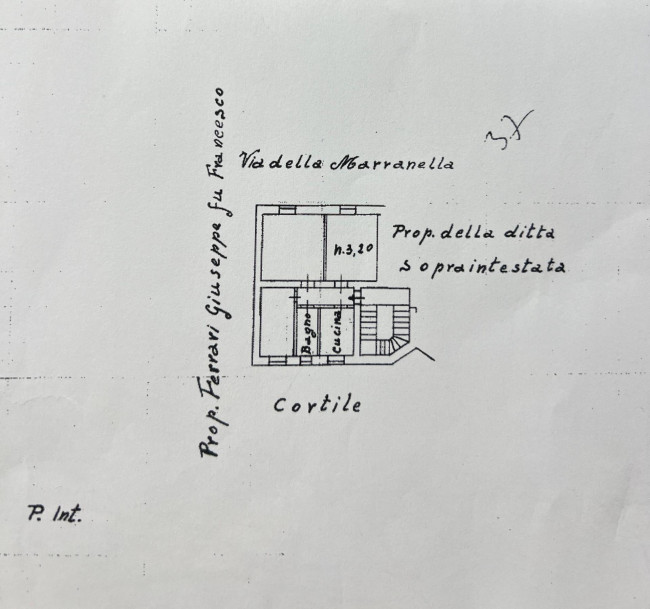 3X
Via della Marranella
Prop. Ferrari Giuseppe fu Francesco
Prop. della ditta
Sopraintestata
h.3,20
Bagno
Cucina
Cortile
P. Int.